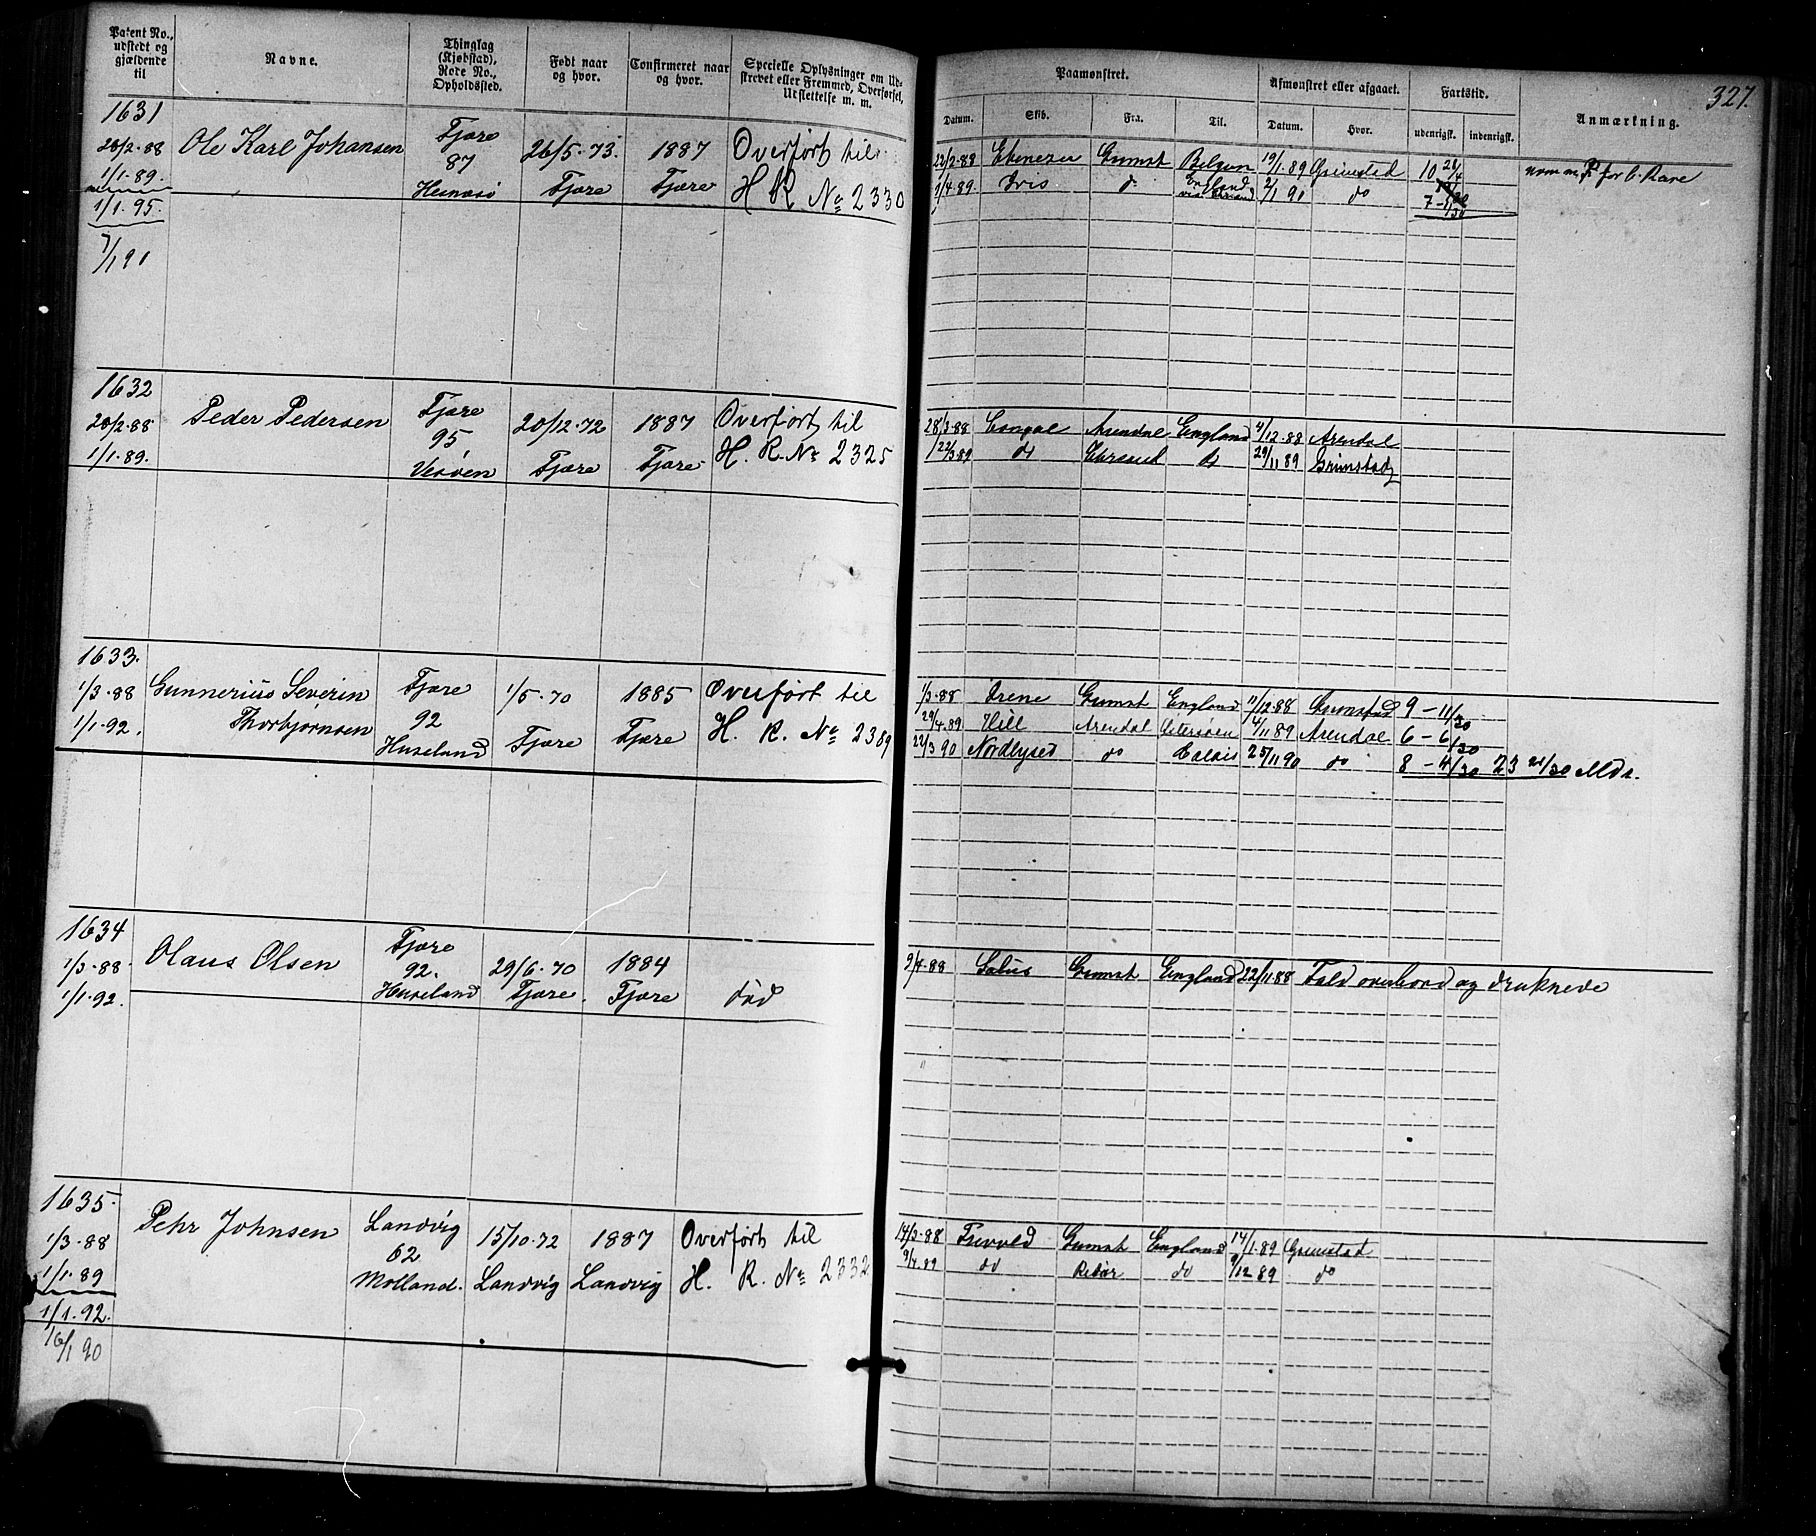 Patent No., udstedt og gjældende til
Navne.
Thinglag (Kjøbstad), Rode No., Opholdssted.
Født naar og hvor.
Confirmeret naar og hvor.
Specielle Oplysninger om Udskrevet eller Fremmed, Overførsel, Udslettelse m. m.
Paamønstret.
Afmønstret eller afgaaet.
Fartstid.
Anmærkning.
327.
Datum.
Skib.
Fra.
Til.
Datum.
Hvor.
udenrigsk.
indenrigsk.
1631
20/2-88
1/1-89.
1/1-95.
7/1 91
Ole Karl Johansen
Fjære
87
26/5-73.
Fjære
1887
Fjære
Overført til
H R No 2330
22/2-88 Ebenezer Grimst 19/1-89 Grimstad 10
1/4 89. Iris do England 2/1 90 do 7
1632
20/2-88
1/1-89.
Peder Pedersen
Fjære
95
20/12-72
Fjære
1887
Fjære
Overført til
H. R. No 2325
28/3-88 Arendal England 4/12-88 Arendal
22/3 89 do do 29/11 89 Grimstad
1633.
1/3-88
1/1-92.
Gunnerius Severin
Thorbjørnsen
Fjære
92
Huseland
1/5-70
Fjære
1885
Fjære
Overført til
H. R. No 2389
1/3-88 Irene Grimst England 11/12-88 Grimstad 9 - 11/30
29/4-89 Hill Arendal 4/11 89 Arendal 6 - 6/30
22/3 90 Nordlyset do Calais 25/11 90 do 8 - 4/30 23 21/30 Mdr.
1634
1/3-88
1/1-92.
Olaus Olsen
Fjære
92.
Huseland
29/6-70
Fjære.
1884
Fjære
død
9/4-88 Grimst England 22/11-88 Fald overbord og druknede
1635.
1/3-88
1/1-89
1/1-92.
16/1 90
Pehr Johnsen
Landvig
62
Molland.
15/10-72
Landvig
1887
Landvig
Overført til
H. R. No 2332
14/3-88 Frivold Grimst England 14/1-89 Grimstad
9/4 89 do do 9/12 89 do